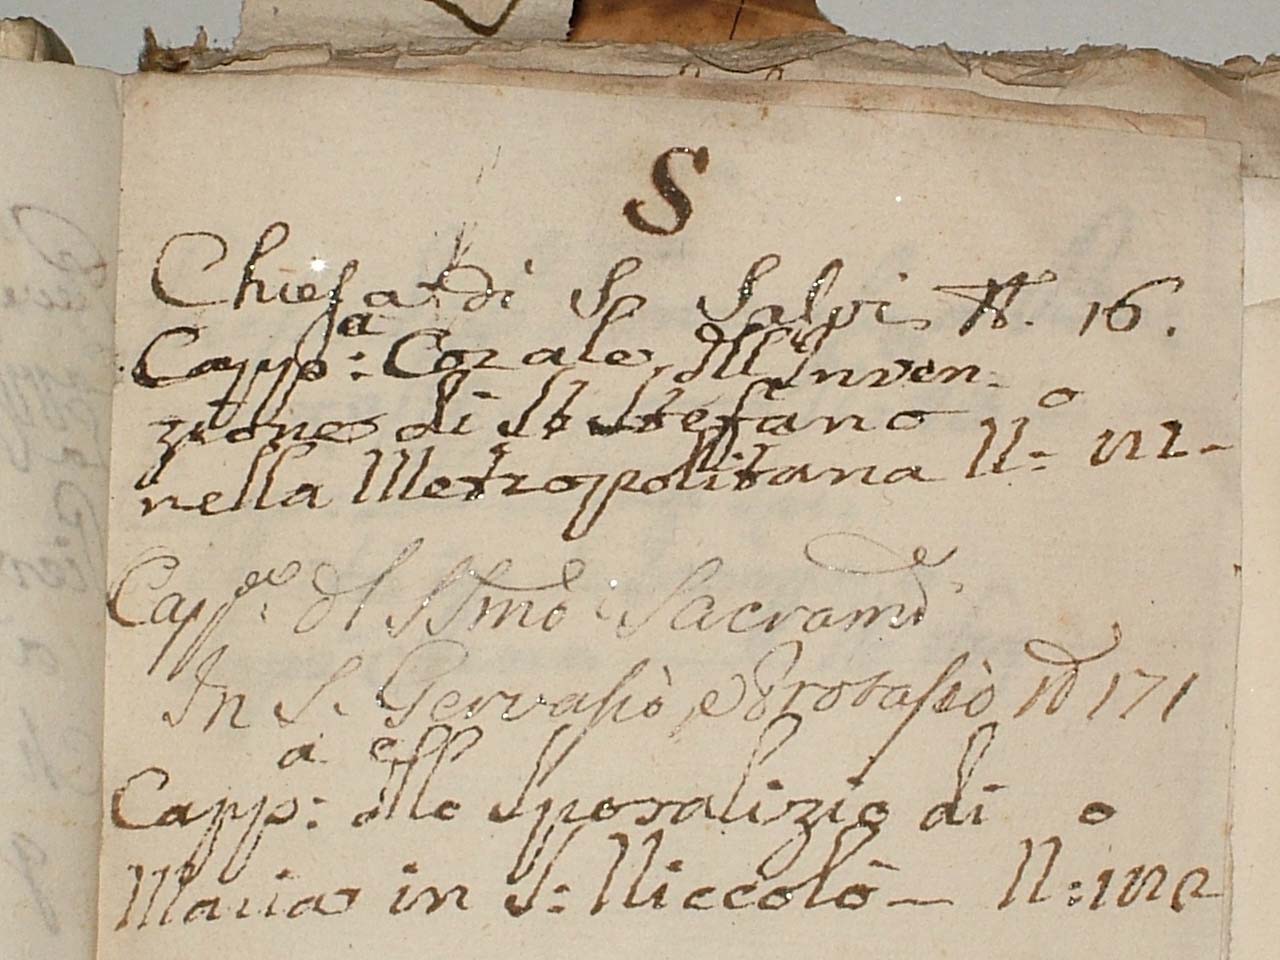 S
Chiesa di S. Salvi N. 16.
Capp.ª Corale dell'Inven-
zione di S. Stefano
nella Metropolitana N:º
Capp.ª dl SSmo Sacramto
In S. Gervasio e Protasio No 171
Capp:ª dello Sposalizio di
Maria in S: Niccolò — N:º